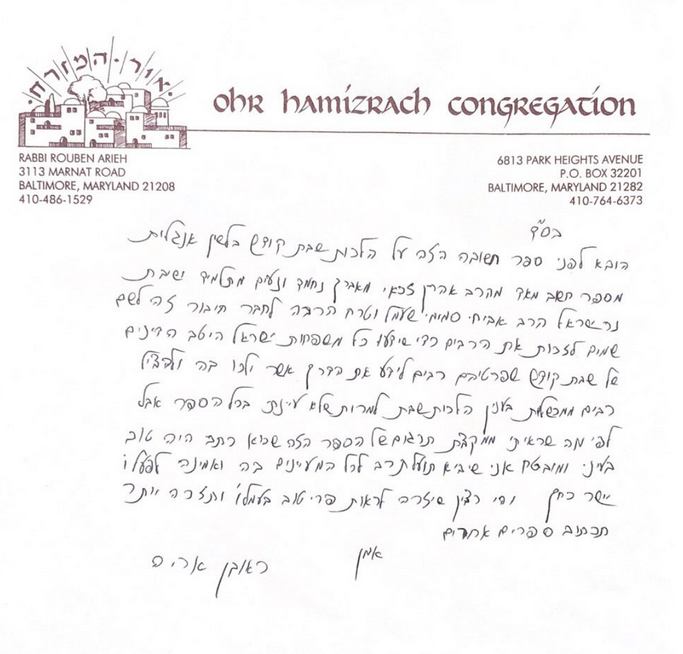 אור המזרח
OHR HAMIZRACH CONGREGATION
RABBI ROUBEN ARIEH
3113 MARNAT ROAD
BALTIMORE, MARYLAND 21208
410-486-1529
6813 PARK HEIGHTS AVENUE
P.O. BOX 32201
BALTIMORE, MARYLAND 21282
410-764-6373
בס"ד
הובא לפני ספר חשובה הזה על הלכות שבת קודש בלשון אנגלית
מספר חשוב מאד מהרב אהרן זכאי מאברך נחמד ונעים מתלמיד ישיבת
נר ישראל הרב אביחי שעמל וטרח הרבה לחבר חיבור זה לשם
שמים לזכות את הרבים כדי שידעו כל משפחות ישראל היטב הדינים
של שבת קודש שפרטיהם רבים לידע את הדרך אשר ילכו בה ולהציל
רבים ממכשולות בענין הלכות שבת למרות שלא עיינתי בכל הספר אבל
לפי מה שראיתי ממקצת תרגום של הספר הזה שהוא כתב היה טוב
בעיני ומובטח אני שיביא תועלת רב לכל המעיינים בה ואמינה לפעלו
יישר כחך ויהי רצון שיזכה לראות פרי טוב בעמלו ותזכה יותר
תכתוב ספרים אחרים
אמן
ראובן אריה